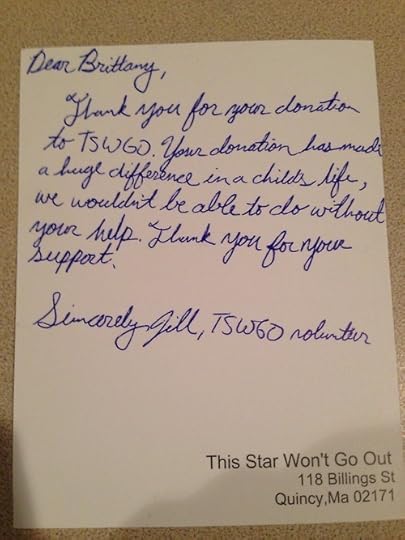 Dear Brittany,
Thank you for your donation
to TSWGO. Your donation has made
a huge difference in a childs life,
we wouldn't be able to do without
your help. Thank you for your
support.
Sincerely Jill, TSWGO volunteer
This Star Won't Go Out
118 Billings St
Quincy,Ma 02171